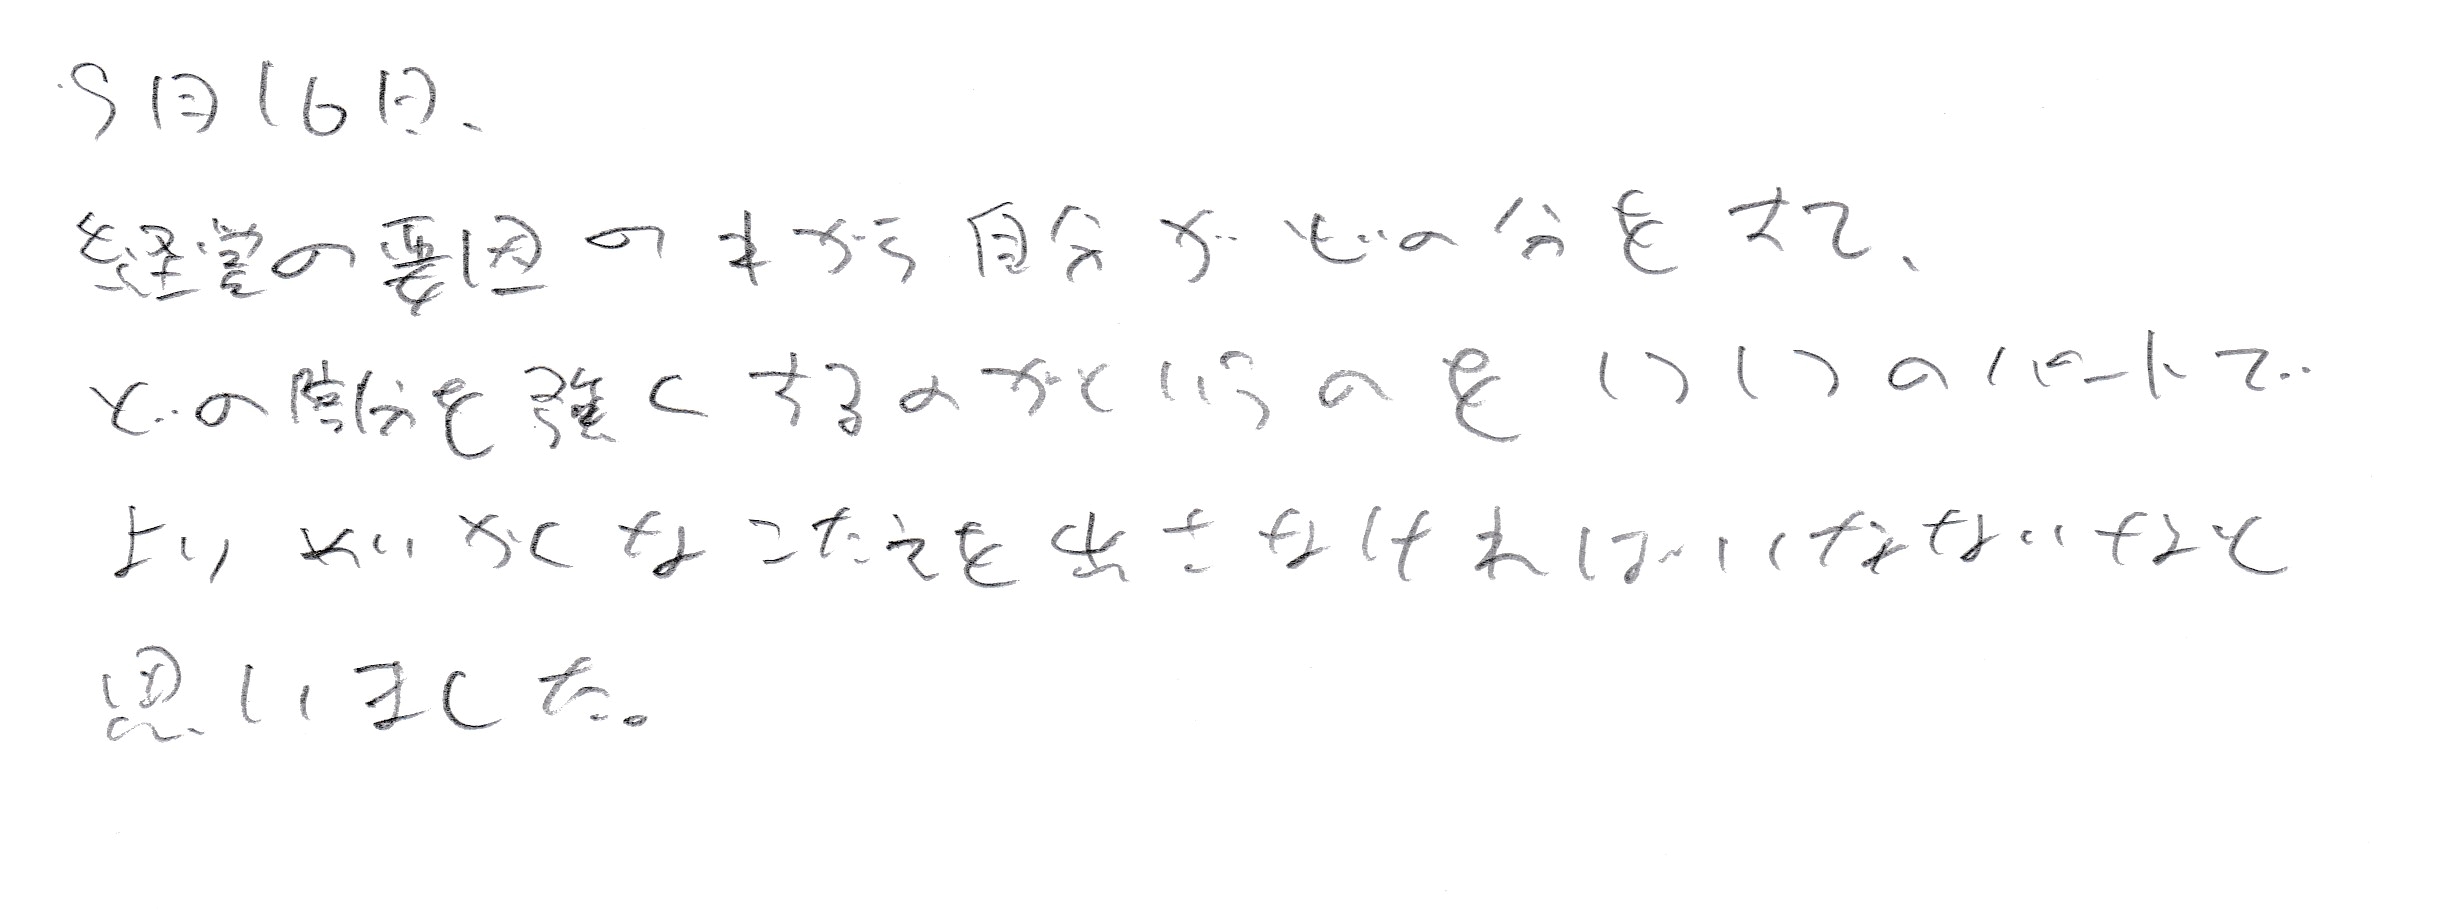 9月16日、
経営の要因のまがら自分がどの分をさて、
どの部分を強くするのかというのを1つ1つのパートで
よりめいかくなこたえを出さなければいけなないなと
思いました。